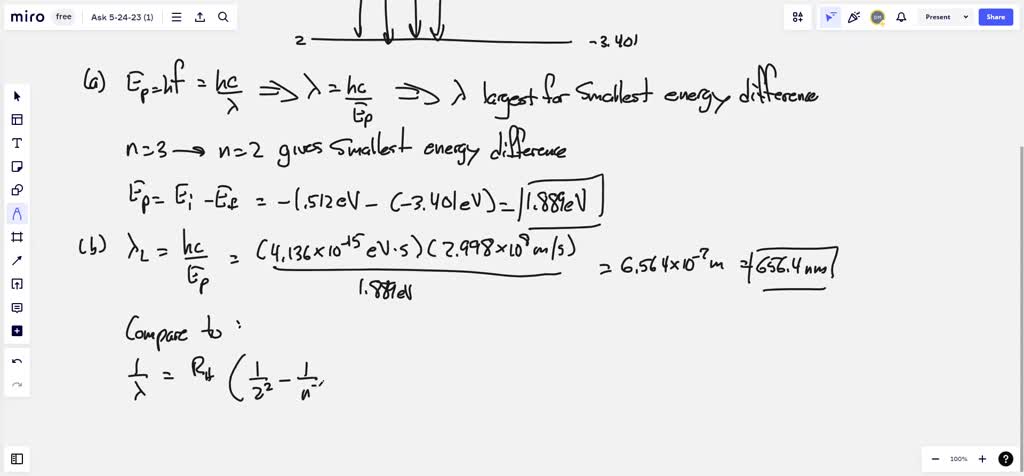 miro free Ask 5-24-23 (1) DM Present Share
2 -3.401
(a) Ep=hf = hc/λ ⟹ λ = hc/Ep ⟹ λ largest for smallest energy difference
n=3 → n=2 gives smallest energy difference
Ep = Ei - Ef = -1.512eV - (-3.401eV) = 1.889eV
(b) λL = hc/Ep = (4.136×10^-15 eV·s)(2.998×10^8 m/s)/1.889eV = 6.564×10^-7 m = 656.4nm
Compare to:
1/λ = RH (1/2^2 - 1/n
100% ?